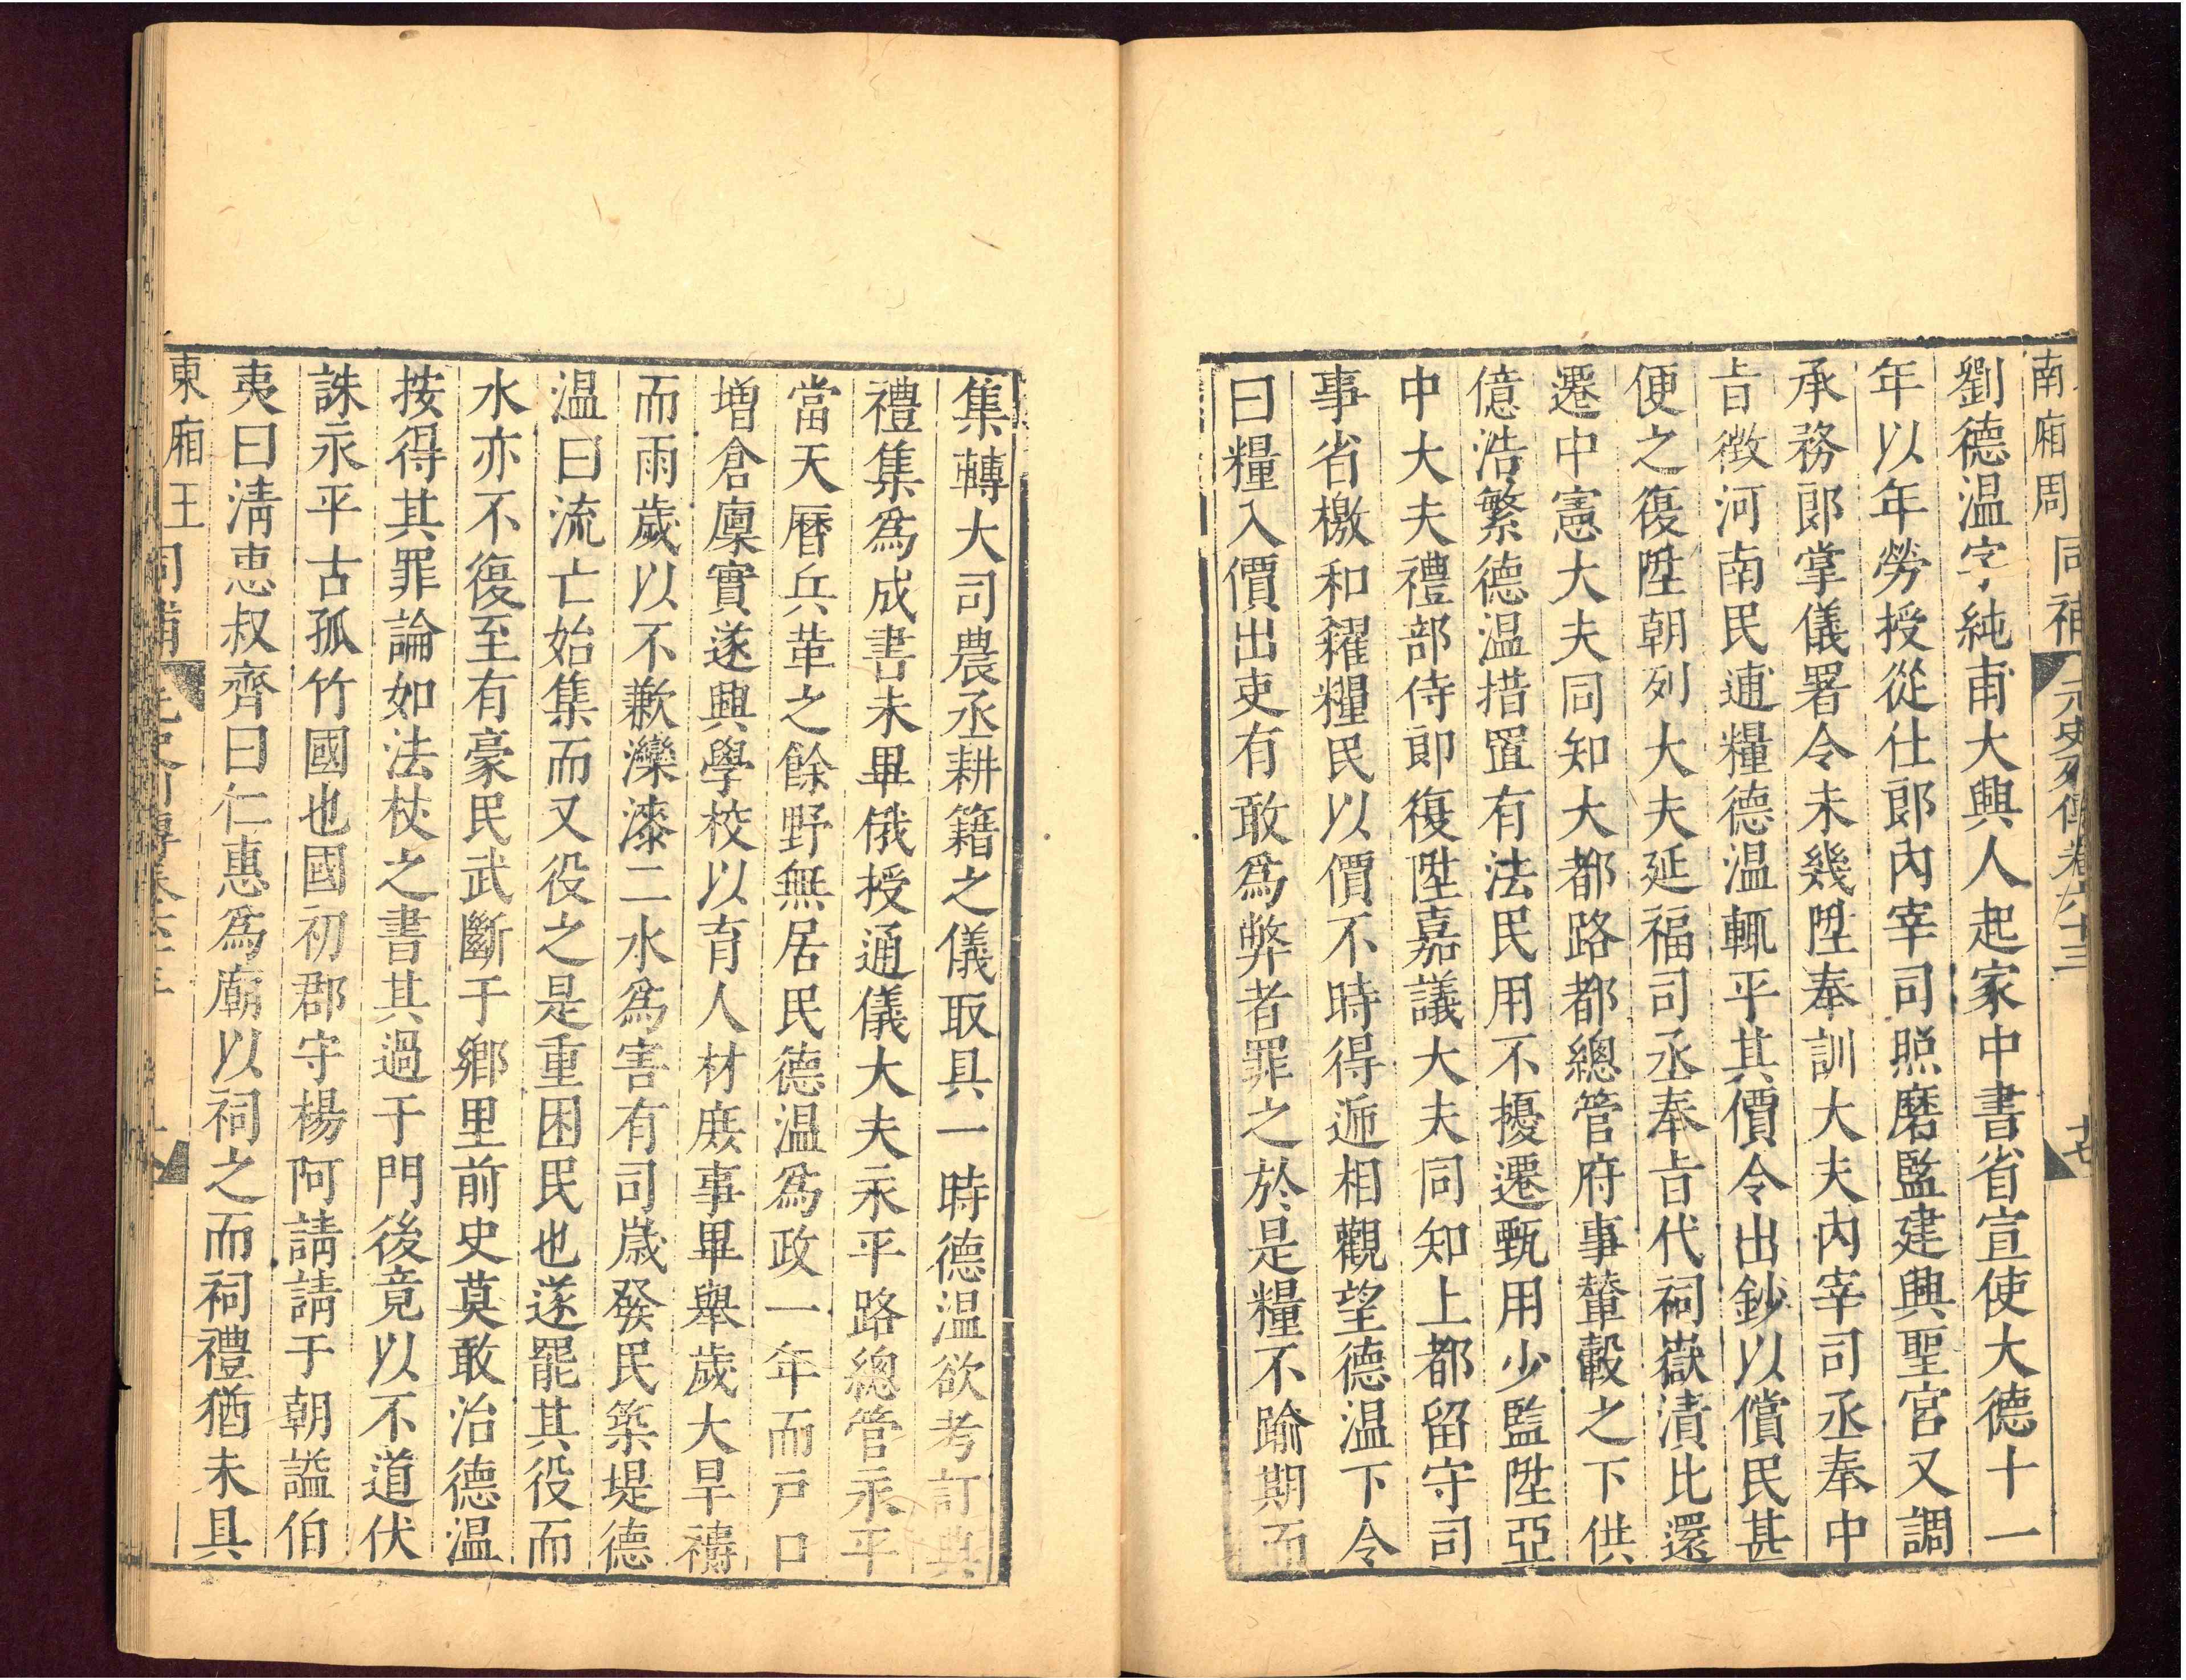 南廂周同補 元史列傳卷六十三 十七
劉德温字純甫大興人起家中書省宣使大德十一
年以年勞授從仕郎内宰司照磨監建興聖宮又調
承務郎掌儀署令未幾陞奉訓大夫内宰司丞奉中
旨徴河南民逋糧德温輒平其價令出鈔以償民甚
便之復陞朝列大夫延福司丞奉旨代祠嶽瀆比還
遷中憲大夫同知大都路都總管府事輦轂之下供
億浩繁德温措置有法民用不擾遷甄用少監陞亞
中大夫禮部侍郎復陞嘉議大夫同知上都留守司
事省檄和糴糧民以價不時得逓相觀望德温下令
曰糧入價出吏有敢爲弊者罪之於是糧不踰期而
集轉大司農丞耕籍之儀取具一時德温欲考訂典
禮集爲成書未畢俄授通儀大夫永平路總管永平
當天曆兵革之餘野無居民德温爲政一年而戸口
増倉廩實遂興學校以育人材庶事畢舉歲大旱禱
而雨歲以不歉灤漆二水爲害有司歲發民築堤德
温曰流亡始集而又役之是重困民也遂罷其役而
水亦不復至有豪民武斷于鄉里前吏莫敢治德温
按得其罪論如法杖之書其過于門後竟以不道伏
誅永平古孤竹國也國初郡守楊阿請請于朝謚伯
夷曰清惠叔齊曰仁惠爲廟以祠之而祠禮猶未具
東廂王同補 元史列傳卷六十三